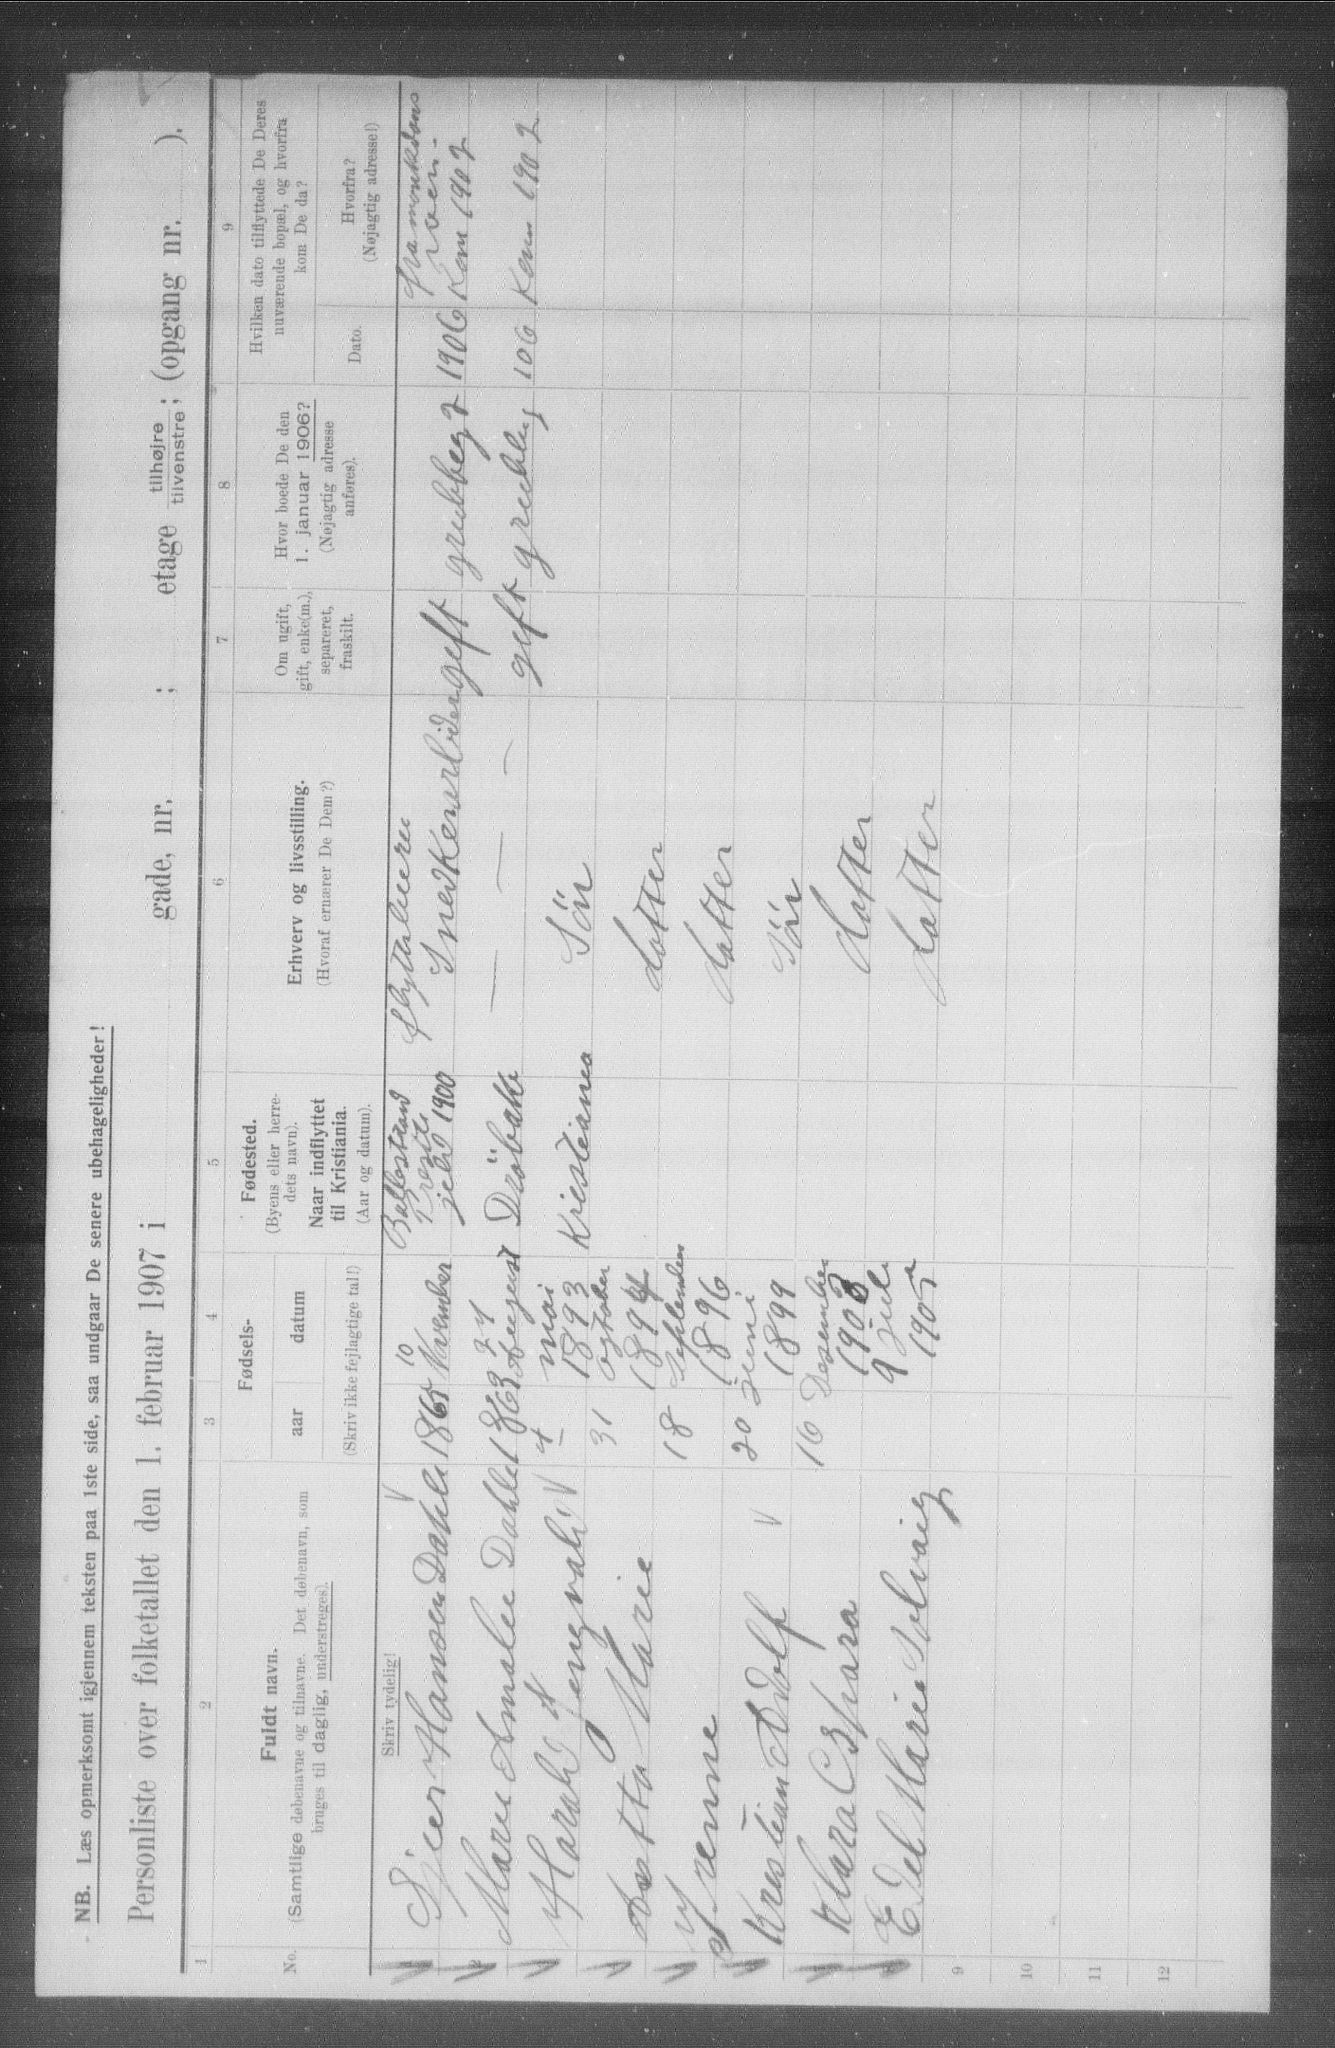 NB. Læs opmerksomt igjennem teksten paa 1ste side, saa undgaar De senere ubehageligheder!
Personliste over folketallet den 1. februar 1907 i gade, nr. ; etage tilhøjre tilvenstre; (opgang nr. ).
1 2 3 4 5 6 7 8 9
No.
Fuldt navn.
(Samtlige døbenavne og tilnavne. Det døbenavn, som
bruges til daglig, understreges).
Fødsels-
aar datum
(Skriv ikke fejlagtige tal!)
Fødested.
(Byens eller herre-
dets navn).
Naar indflyttet
til Kristiania.
(Aar og datum).
Erhverv og livsstilling.
(Hvoraf ernærer De Dem?)
Om ugift,
gift, enke(m.),
separeret,
fraskilt.
Hvor boede De den
1. januar 1906?
(Nøjagtig adresse
anføres).
Hvilken dato tilflyttede De Deres
nuværende bopæl, og hvorfra
kom De da?
Dato.
Hvorfra?
(Nøjagtig adresse!)
Skriv tydelig!
Hansen Dahle 1865 10 November Ballestrand 1900 Snedkerarbider geft grubbegt 1906 Kom 1902
2 Marie Amalie Dahle 1863 August Dröbak — — — geft 106 Kom 1902
Harald 4 mai 1893 Kristiania Sön
Asta Marie 31 October 1894 datter
Yrenne 18 1896 datter
Kristian Adolf 20 Juni 1899 Sön
Klara 16 Desember datter
Edel Marie Solvaig 9 Juli 1905 datter
9
10
11
12